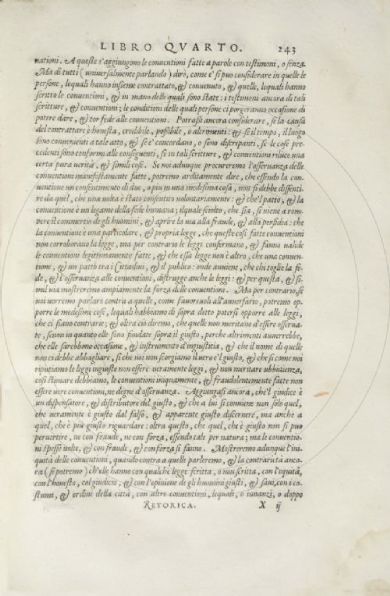 LIBRO QVARTO. 243
nationi. A queste s'aggiungono le conuentioni fatte a parole con testimoni, o senza.
Ma di tutti (uniuersalmente parlando) dirò, come e' si può considerare in quelle le
persone, lequali hanno insieme contrattato, & conuenuto, & quelle, lequali hanno
scritto le conuentioni, & in mano delle quali sono state: i testimoni ancora di tali
scritture, & conuentioni; le conditioni delle quali persone ci porgeranno occasione di
potere dare, & tor fede alle conuentioni. Potrassi ancora considerare, se la causa
del contrattare è honesta, credibile, possibile, o altrimenti: & se il tempo, il luogo
sono conuenienti a tale atto, & se e' concordano, o sono discrepanti, se le cose pre-
cedenti sono conformi alle conseguenti, se in tali scritture, & conuentioni riluce una
certa pura verità, & simili cose. Se noi adunque procureremo l'osseruanza delle
conuentioni manifestamente fatte, potremo arditamente dire, che essendo la con-
uentione un consentimento di due, o più in una medesima cosa, non si debbe dissenti-
re da quel, che una uolta è stato consentito volontariamente: & che'l patto, & la
conuentione è un legame della fede humana; ilquale sciolto, che sia, si viene a rom-
pere il commercio de gli huomini, & aprire la uia alla fraude, & alla perfidia: che
la conuentione è una particolare, & propria legge, che queste cosi fatte conuentioni
non corroborano la legge, ma per contrario le leggi confermano, & fanno ualide
le conuentioni legitimamente fatte, & che essa legge non è altro, che una conuen-
tione, & un patto tra i Cittadini, & il publico: onde auuiene, che chi toglie la fe-
de, & l'osseruanza alle conuentioni, distrugge anche le leggi: & per questa, & si-
mil via mostreremo ampiamente la forza delle conuentioni. Ma per contrario, se
noi uorremo parlare contra a quelle, come fauoreuoli all'auuersario, potremo op-
porre le medesime cose, lequali habbiamo di sopra detto potersi opporre alle leggi,
che ci siano contrarie; & oltra ciò diremo, che quelle non meritano d'essere osserua-
te, se non in quanto elle sono fondate sopra il giusto, perche altrimenti auuerrebbe,
che elle sarebbono occasione, & instrumento d'ingiustitia, & che il nome di quelle
non ci debbe abbagliare, si che noi non scorgiamo il uero e'l giusto, & che si come noi
reputiamo le leggi ingiuste non essere ueramente leggi, & non meritare ubbidienza,
cosi stimare debbiamo, le conuentioni iniquamente, & fraudolentemente fatte non
essere uere conuentioni, ne degne d'osseruanza. Aggiungasi ancora, che'l giudice è
un dispensatore, & distributore del giusto, & che a lui si conuiene non solo quel,
che ueramente è giusto dal falso, & apparente giusto discernere, ma anche a
quel, che è più giusto riguardare: oltra questo, che quel, che è giusto non si può
peruertire, ne con fraude, ne con forza, essendo tale per natura; ma le conuentio-
ni spesse uolte, & con fraude, & con forza si fanno. Mostreremo adunque l'ini-
quità delle conuentioni, quando contra a quelle parleremo, & la contrarietà anco-
ra (se potremo) ch'elle hanno con qualche legge scritta, o non scritta, con l'equità,
con l'honesto, col giudicio, & con l'opinione de gli huomini giusti, & sani, con i co-
stumi, & ordini della città, con altre conuentioni, lequali, o innanzi, o doppo
RETORICA. X ij